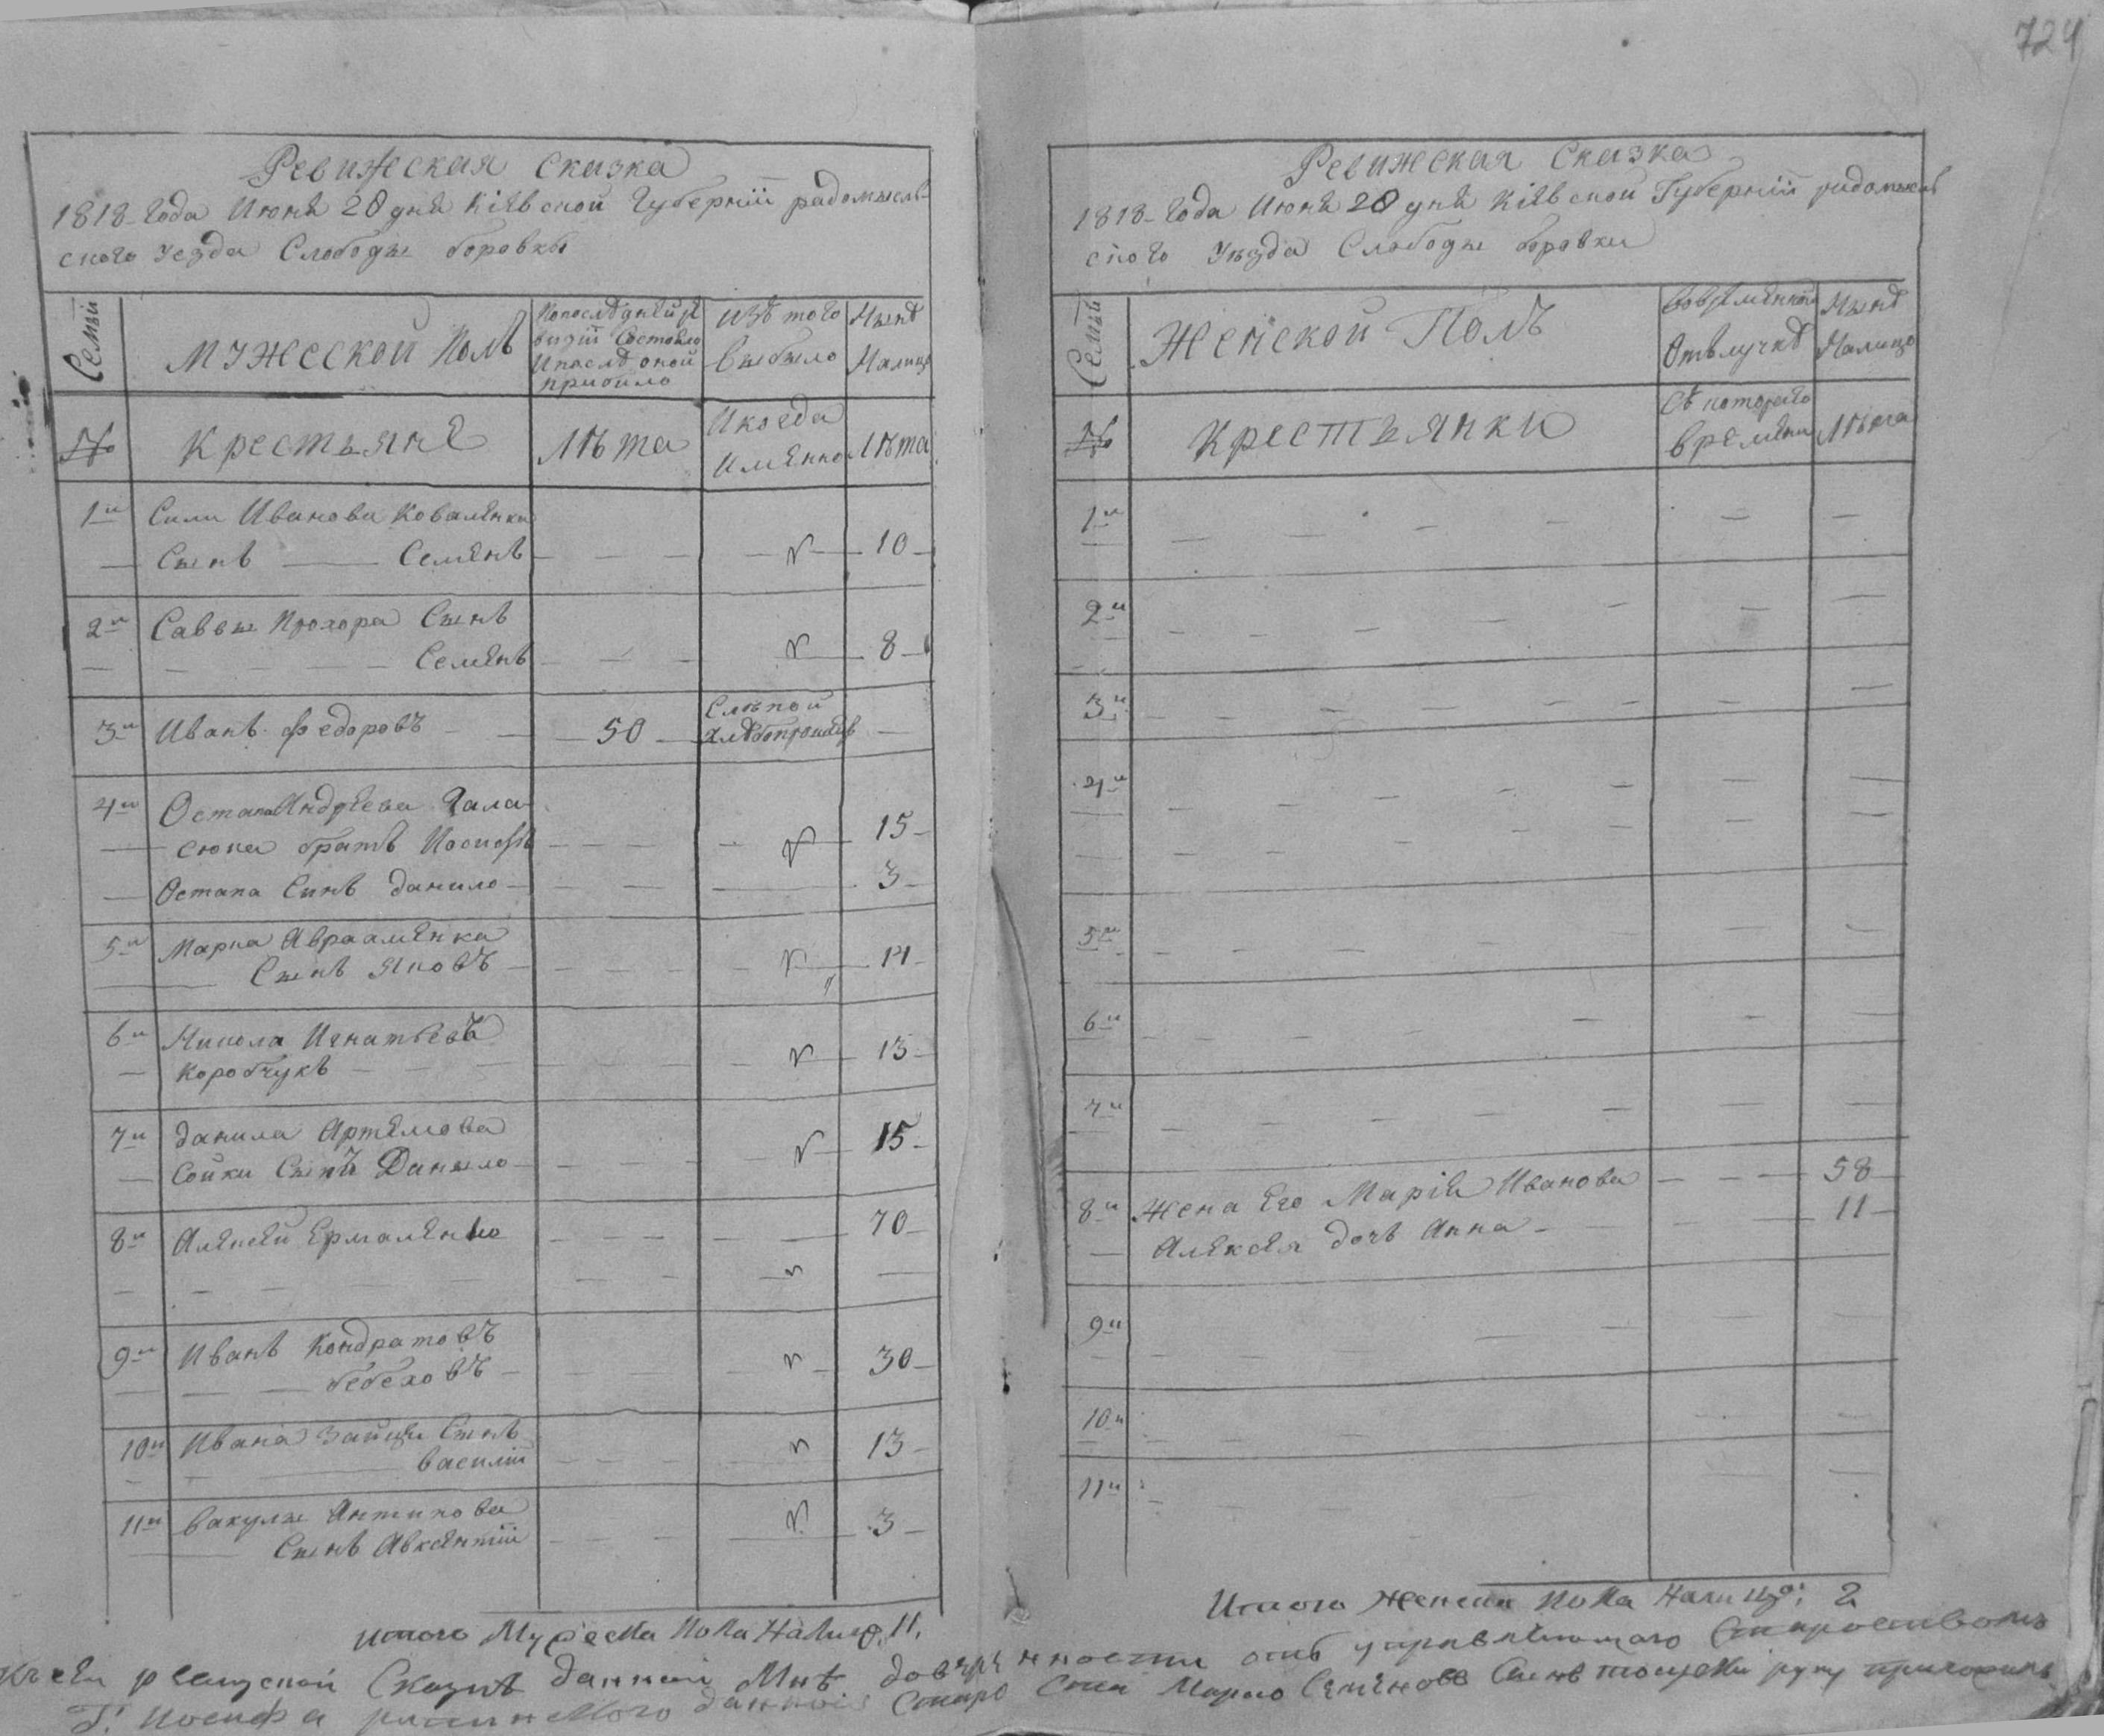 724
Ревижская сказка
1818 года Июня 20 дня Кіевской Губерніи радомысль-
ского уезда Слободы боровки
Семьи
Мужеской Полъ
Изъ того
выбыло
Ныне
Налицо
№
Крестьяне
Лѣта
И когда
Именно
Лѣта
1и Сили Иванова Коваленка
Сынъ Семенъ 10
2и Саввы Прохора Сынъ
Семенъ 8
3и Иванъ Федоровъ 50 Слѣпой
4и Остапа Андреева Гала-
сюка братъ Иосифъ 15
Остапа Синъ данило 3
5и Марка Авраменка
Сынъ Яковъ 14
6и Никола Игнатьевъ
Коробчукъ 13
7и данила Артемова
Сойки Сынъ Даныло 15
8и Алексей Ермаленко 70
9и Иванъ Кондратовъ
бебеховъ 30
10и Ивана Зайци Сынъ
василій 13
11и вакулы Антипова
Сынъ Авксентій 3
Итого Мужеска Пола Налицо 11.
Ревижская Сказка
1818 года Июня 20 дня Кіевской Губерніи радомысль
ского уезда Слободы боровки
Семьи
Женской Полъ
Во временной
Отлучке
Ныне
Налицо
№
Крестьянки
Съ которого
времени
Лѣта
1и
2и
3и
4и
5и
6и
7и
8и Жена Его Марія Иванова 58
Алексея дочь Анна 11
9и
10и
11и
Итого женска Пола Налицо: 2
Сказке данной Мнѣ доверенности отъ
Г: Иосифа данной Марко Семеновъ Синъ руку приложилъ